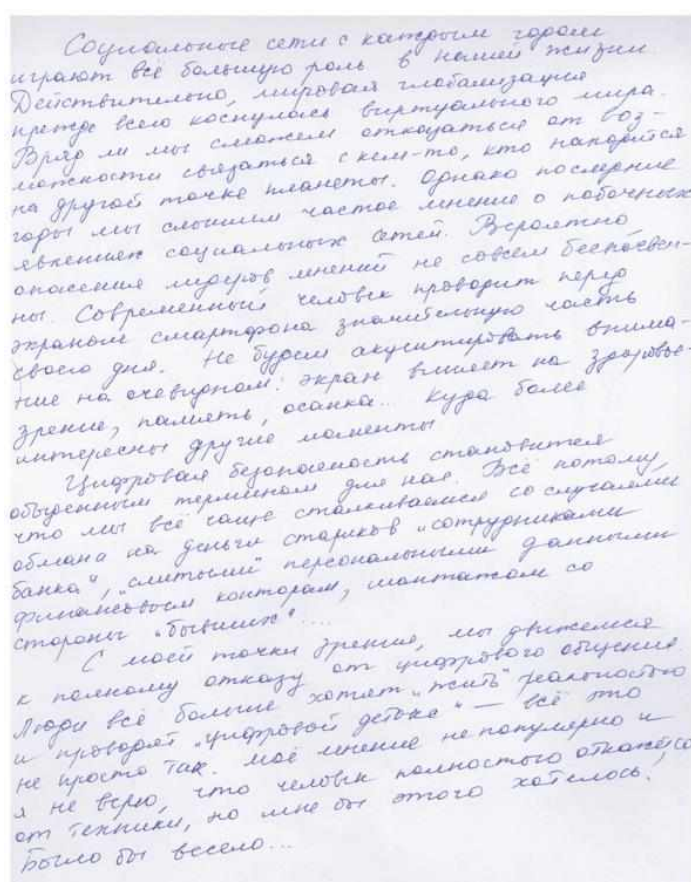 Социальные сети с каждым годом
играют всё большую роль в нашей жизни
Действительно, мировая глобализация
прежде всего коснулась виртуального мира.
Вряд ли мы сможем отказаться от воз-
можности связаться с кем-то, кто находится
на другой точке планеты. Однако последние
годы мы слышим частое мнение о побочных
явлениях социальных сетей. Вероятно,
опасения лидеров мнений не совсем беспочвен-
ны. Современный человек проводит перед
экраном смартфона значительную часть
своего дня. Не будем акцентировать внима-
ние на очевидном: экран влияет на здоровье-
зрение, память, осанка... Куда более
интересны другие моменты
Цифровая безопасность становится
обыденным термином для нас. Всё потому,
что мы всё чаще сталкиваемся со случаями
обмана на деньги стариков „сотрудниками
банка“, „слитыми“ персональными данными
финансовым конторам, шантажом со
стороны „бывших“....
С моей точки зрения, мы движемся
к полному отказу от цифрового общения
Люди всё больше хотят „жить“ реальностью
и проводят „цифровой детокс“ — всё это
не просто так. Моё мнение непопулярно и
я не верю, что человек полностью откажется
от техники, но мне бы этого хотелось!
Было бы весело...